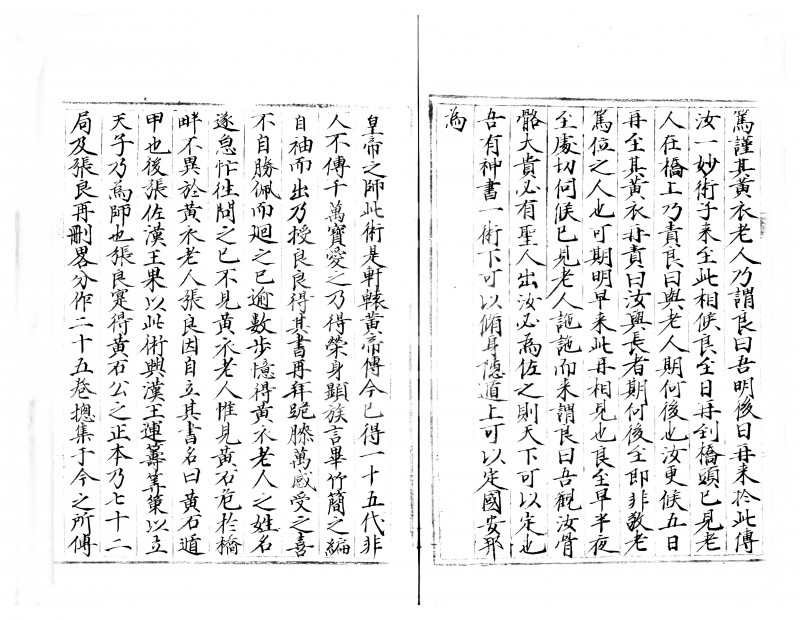 篤謹其黃衣老人乃謂良曰吾明後日再来扵此傳
汝一妙術子来至此相候良至日再到橋頭已見老
人在橋上乃責良曰與老人期何後也汝更候五日
再至其黃衣再責曰汝與長者期何後至即非敎老
篤位之人也可期明早来此再相見也良至早半夜
至處切何候已見老人訑訑而来謂良曰吾觀汝骨
骼大貴必有聖人出汝必為佐之則天下可以定也
吾有神書一術下可以脩身隱道上可以定國安邦
為
皇帝之師此術是軒轅黃帝傳今已得一十五代非
人不傳千萬寶愛之乃得榮身顯族言畢竹簡之編
自袖而出乃授良良得其書再拜跪膝萬感受之喜
不自勝佩而廻之已逾數步憶得黃衣老人之姓名
遂怱忙徃問之已不見黃衣老人惟見黃石危扵橋
畔不異於黃衣老人張良因自立其書名曰黃石遁
甲也後張佐漢王果以此術興漢王運籌筭策以立
天子乃爲師也張良寔得黃石公之正本乃七十二
局及張良再刪畧分作二十五卷揔集于今之所傳